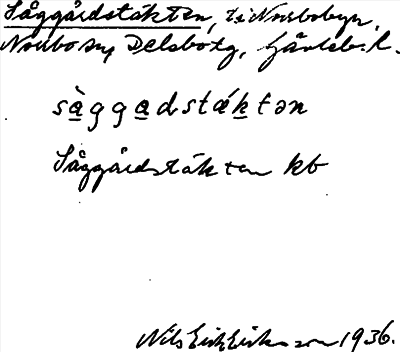 Såggårdstäkten, t. i Norrbobyn,
Norrbo sn, Delsbo tg, Gävleb. l.
sàggadstǽktən
Såggårdstäkten kb
Nils Erik Eriksson 1936.